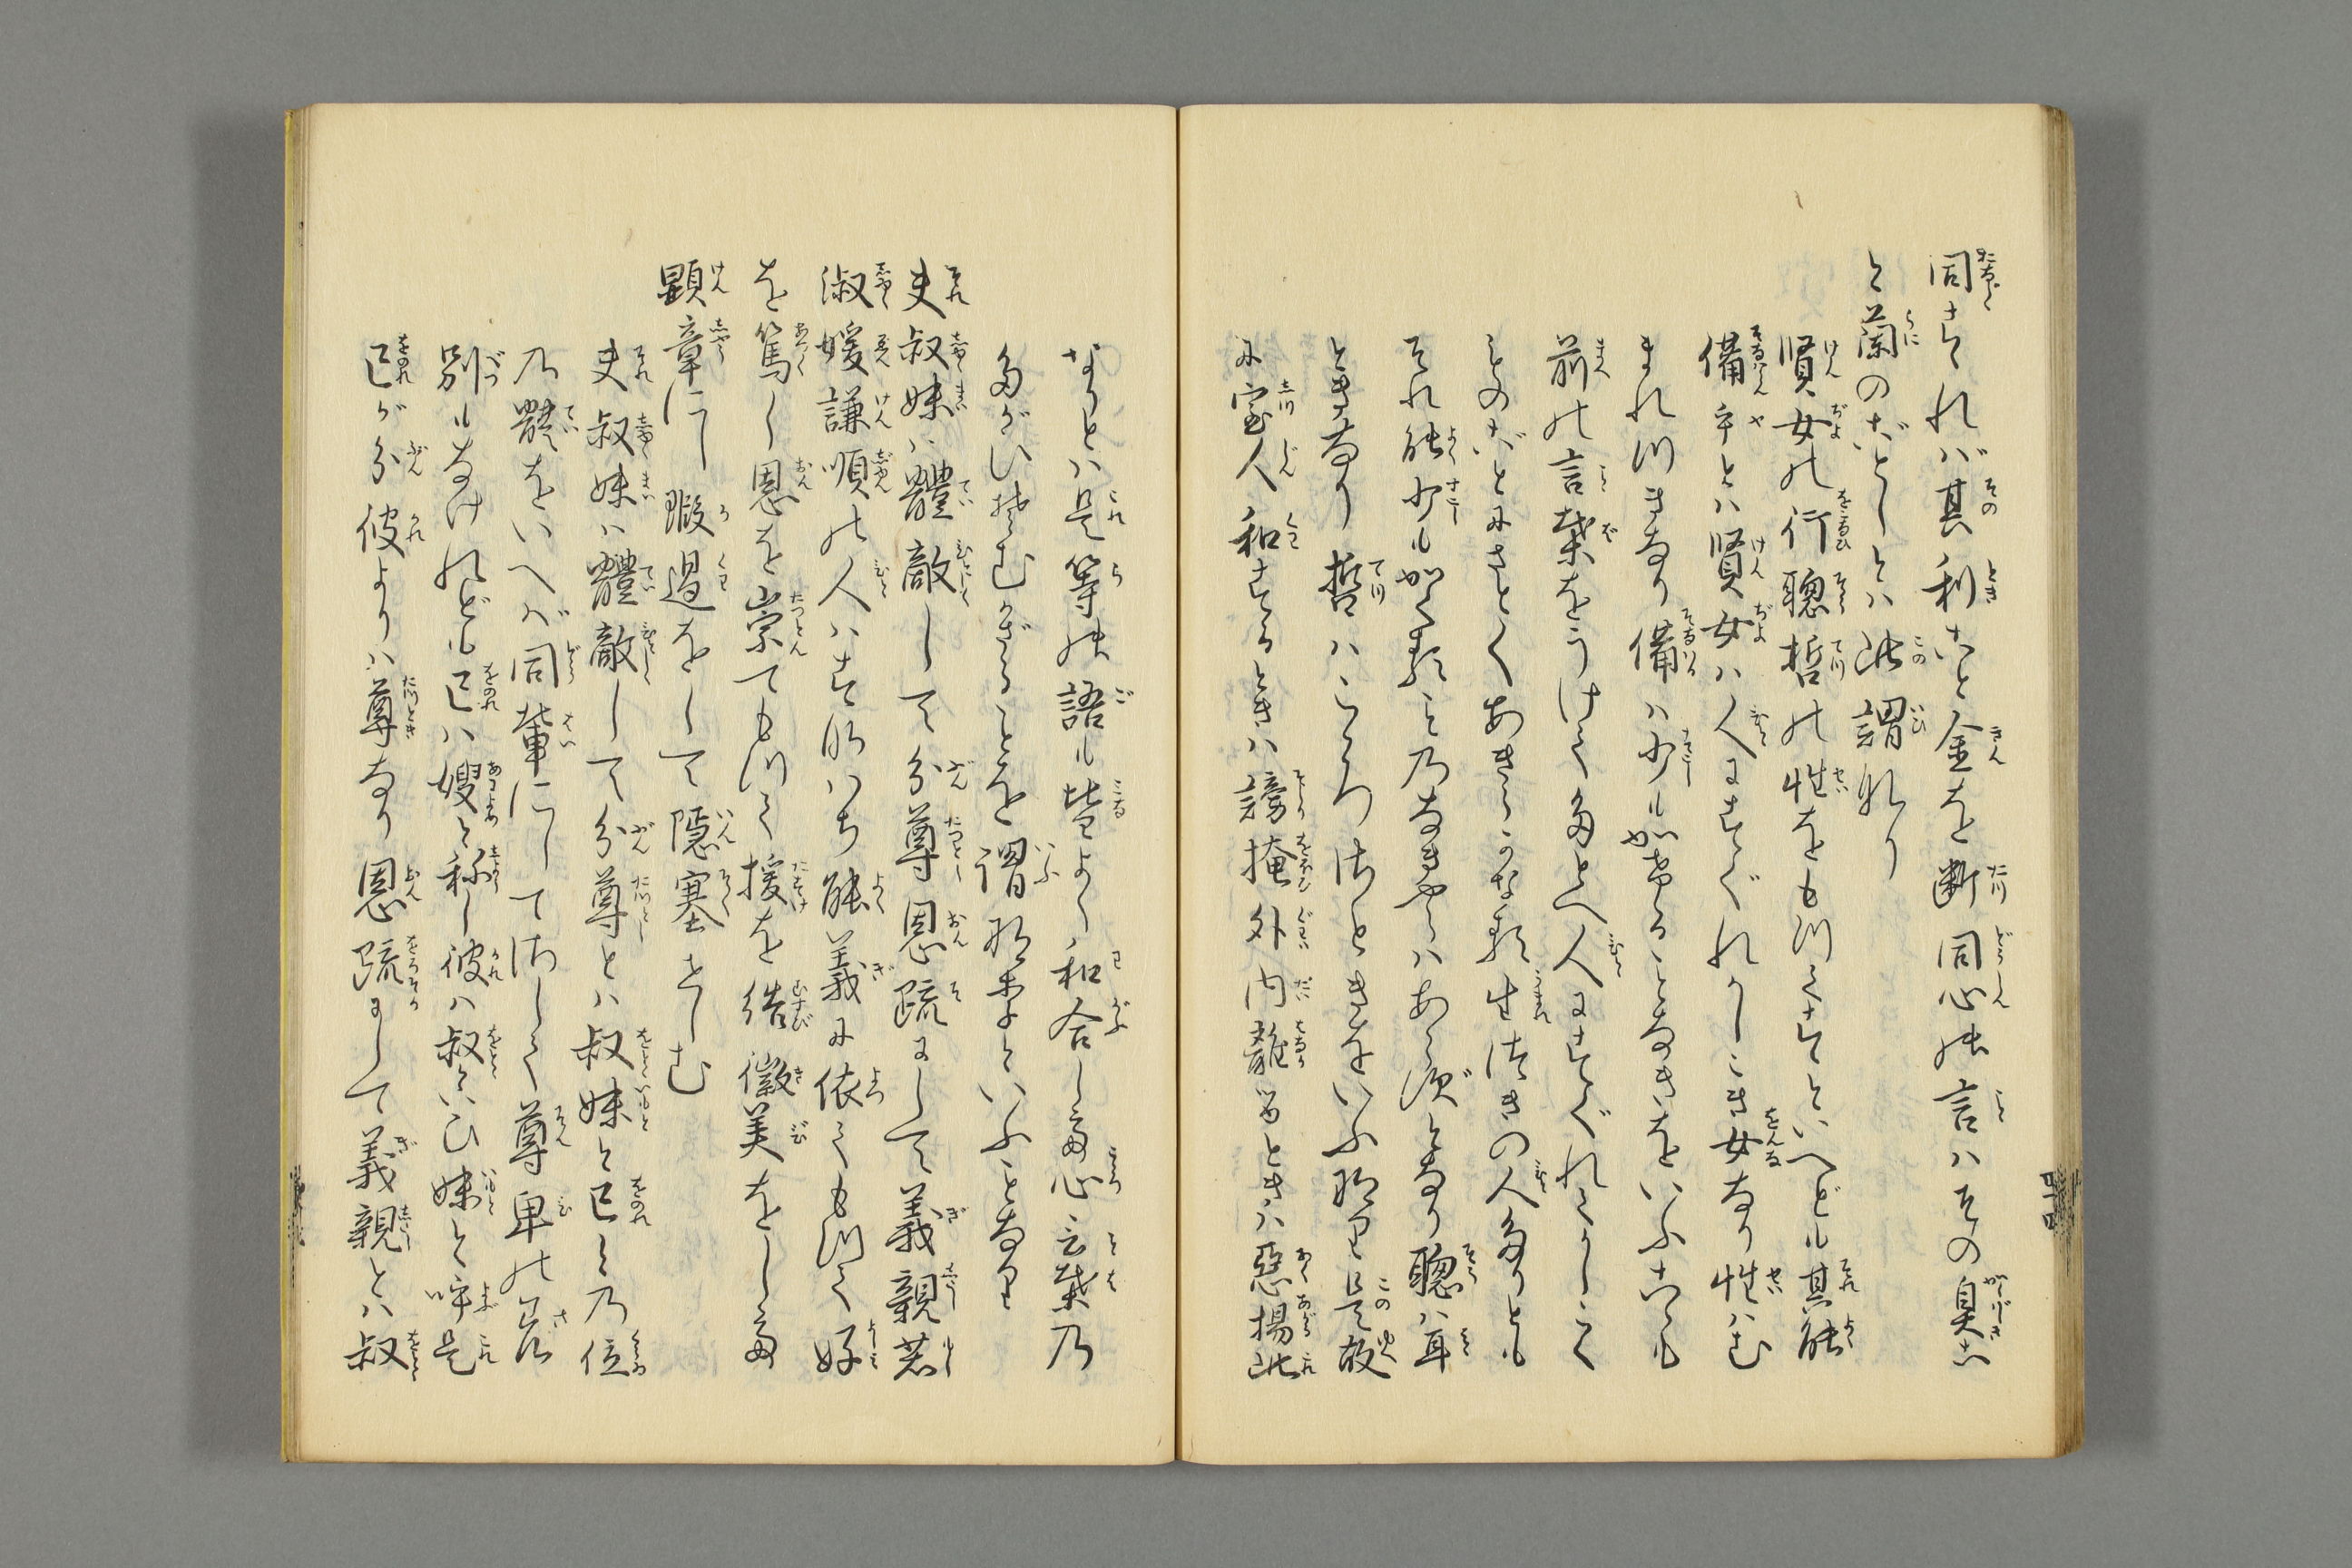 同すれバ其利こと金を断同心の言ハその臭こ
と蘭のごとしとハ此謂なり
賢女の行聰哲の性をもつてすといへども其能
備乎とハ賢女ハ人にすぐれかしこき女なり性ハむ
まれつきなり備ハ少も如せることなきをいふこゝも
前の言葉をうけてたとへ人にすぐれてかしこく
ものごとにさとくあきらかな類生れつきの人たりとも
それ能少もかくることのなきやうハあらずとなり聰ハ耳
ときなり哲ハこゝろのときをいふなり是故
に室人和するときハ謗掩外内離るときハ惡揚此
なりとハ是等の語も皆よく和合した心言葉の
たがひそむかざることを謂なりといふことなり
夫叔妹ハ體敵して分尊恩疏にして義親若
淑媛謙順の人ハすなハち能義に依てもつて好
を篤し恩を崇てもつて援を結徽美をした
顕章にし瑕過をして隠塞せしむ
夫叔妹ハ體敵して分尊とハ叔妹と己との位
の體をいへバ同輩にしてさして尊卑の差
別もなけれども己ハ嫂と称し彼ハ叔といひ妹と呼是
己が分彼よりハ尊なり恩疏にして義親とハ叔